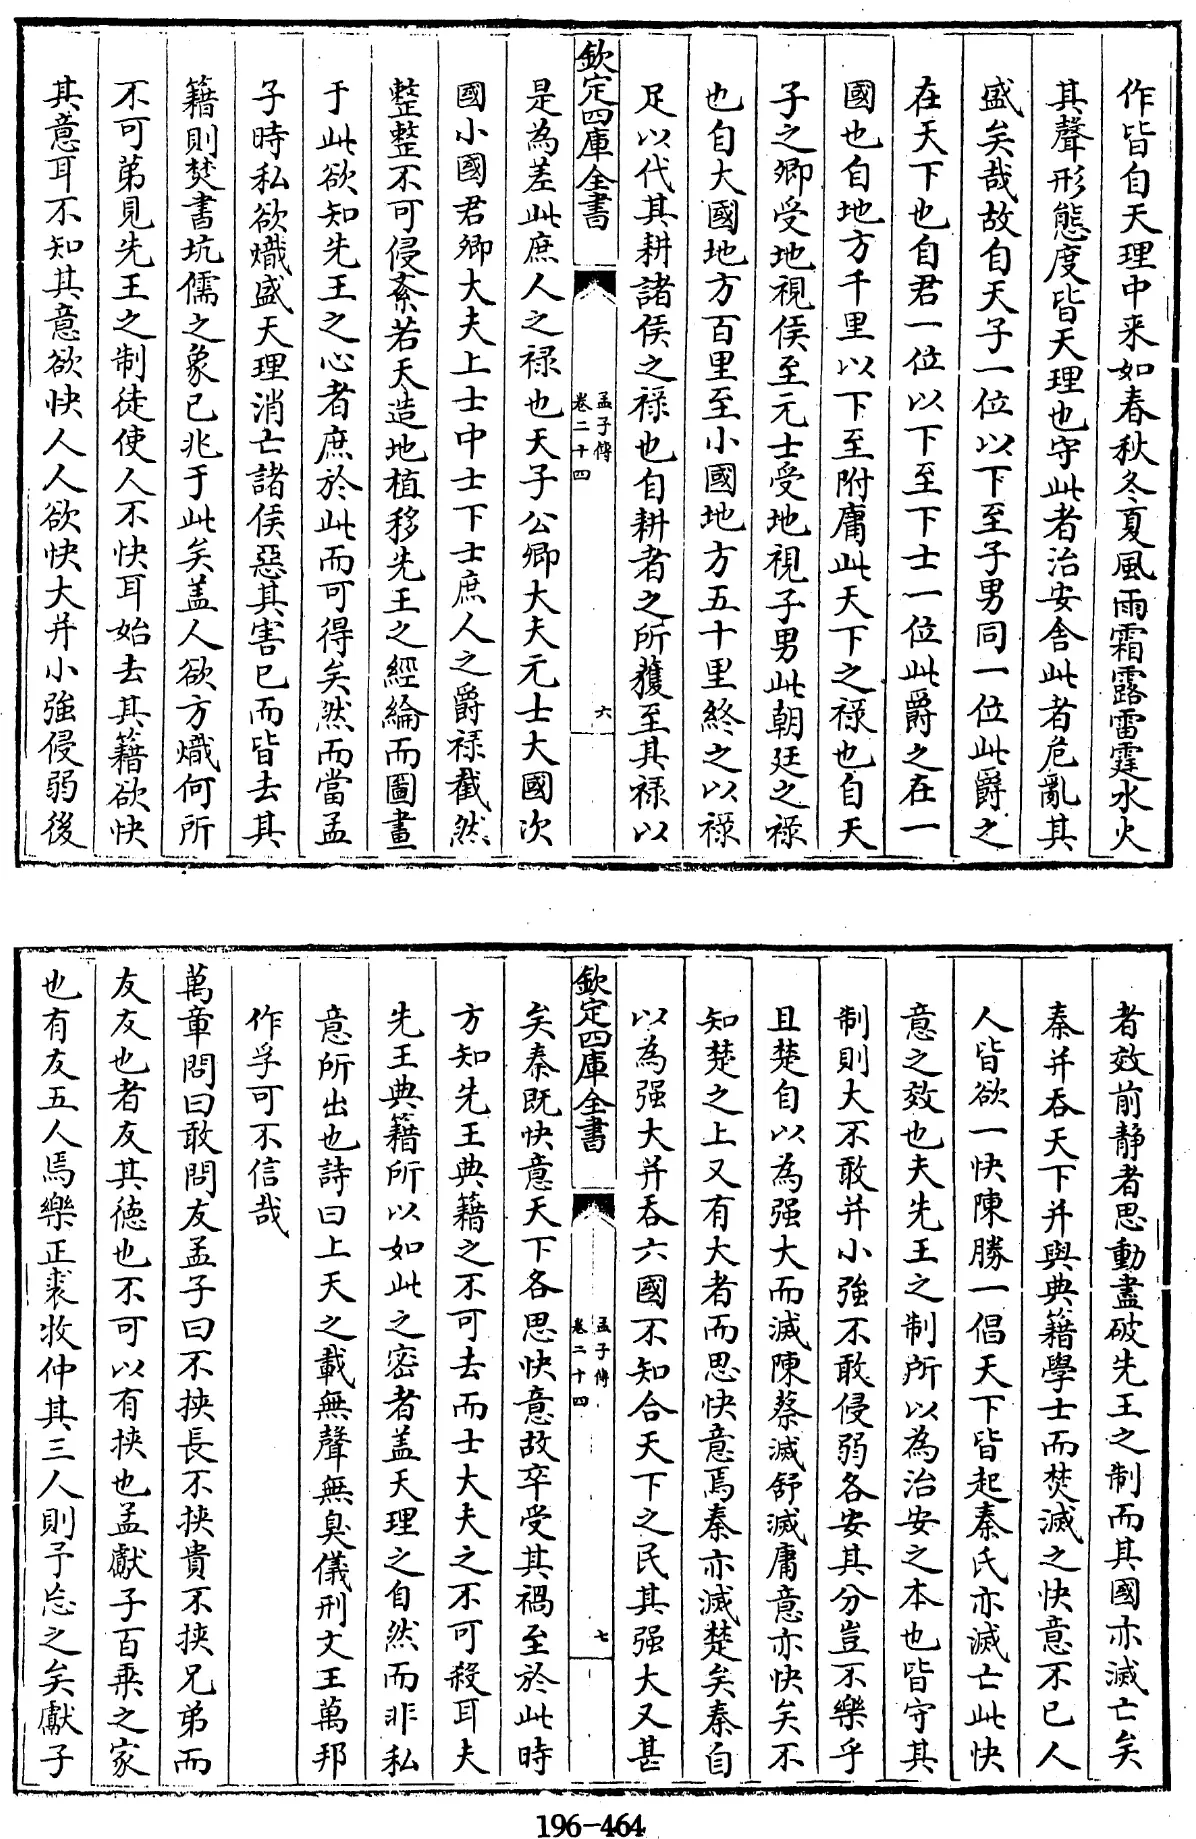 作皆自天理中来如春秋冬夏風雨霜露雷霆水火
其聲形態度皆天理也守此者治安舎此者危亂其
盛矣哉故自天子一位以下至子男同一位此爵之
在天下也自君一位以下至下士一位此爵之在一
國也自地方千里以下至附庸此天下之禄也自天
子之卿受地視侯至元士受地視子男此朝廷之禄
也自大國地方百里至小國地方五十里終之以禄
足以代其耕諸侯之禄也自耕者之所獲至其禄以
欽定四庫全書
孟子傳
卷二十四
六
是為差此庶人之禄也天子公卿大夫元士大國次
國小國君卿大夫上士中士下士庶人之爵禄截然
整整不可侵紊若天造地植移先王之經綸而圖畫
于此欲知先王之心者庶於此而可得矣然而當孟
子時私欲熾盛天理消亡諸侯惡其害已而皆去其
籍則焚書坑儒之象已兆于此矣盖人欲方熾何所
不可弟見先王之制徒使人不快耳始去其籍欲快
其意耳不知其意欲快人人欲快大并小強侵弱後
者效前静者思動盡破先王之制而其國亦滅亡矣
秦并吞天下并與典籍學士而焚滅之快意不已人
人皆欲一快陳勝一倡天下皆起秦氏亦滅亡此快
意之效也夫先王之制所以為治安之本也皆守其
制則大不敢并小強不敢侵弱各安其分豈不樂乎
且楚自以為强大而滅陳蔡滅舒滅庸意亦快矣不
知楚之上又有大者而思快意焉秦亦滅楚矣秦自
以為强大并吞六國不知合天下之民其强大又甚
欽定四庫全書
孟子傳
卷二十四
七
矣秦既快意天下各思快意故卒受其禍至於此時
方知先王典籍之不可去而士大夫之不可殺耳夫
先王典籍所以如此之密者盖天理之自然而非私
意所出也詩曰上天之載無聲無臭儀刑文王萬邦
作孚可不信哉
萬章問曰敢問友孟子曰不挾長不挾貴不挾兄弟而
友友也者友其徳也不可以有挾也孟獻子百乗之家
也有友五人焉樂正裘牧仲其三人則予忘之矣獻子
196-464